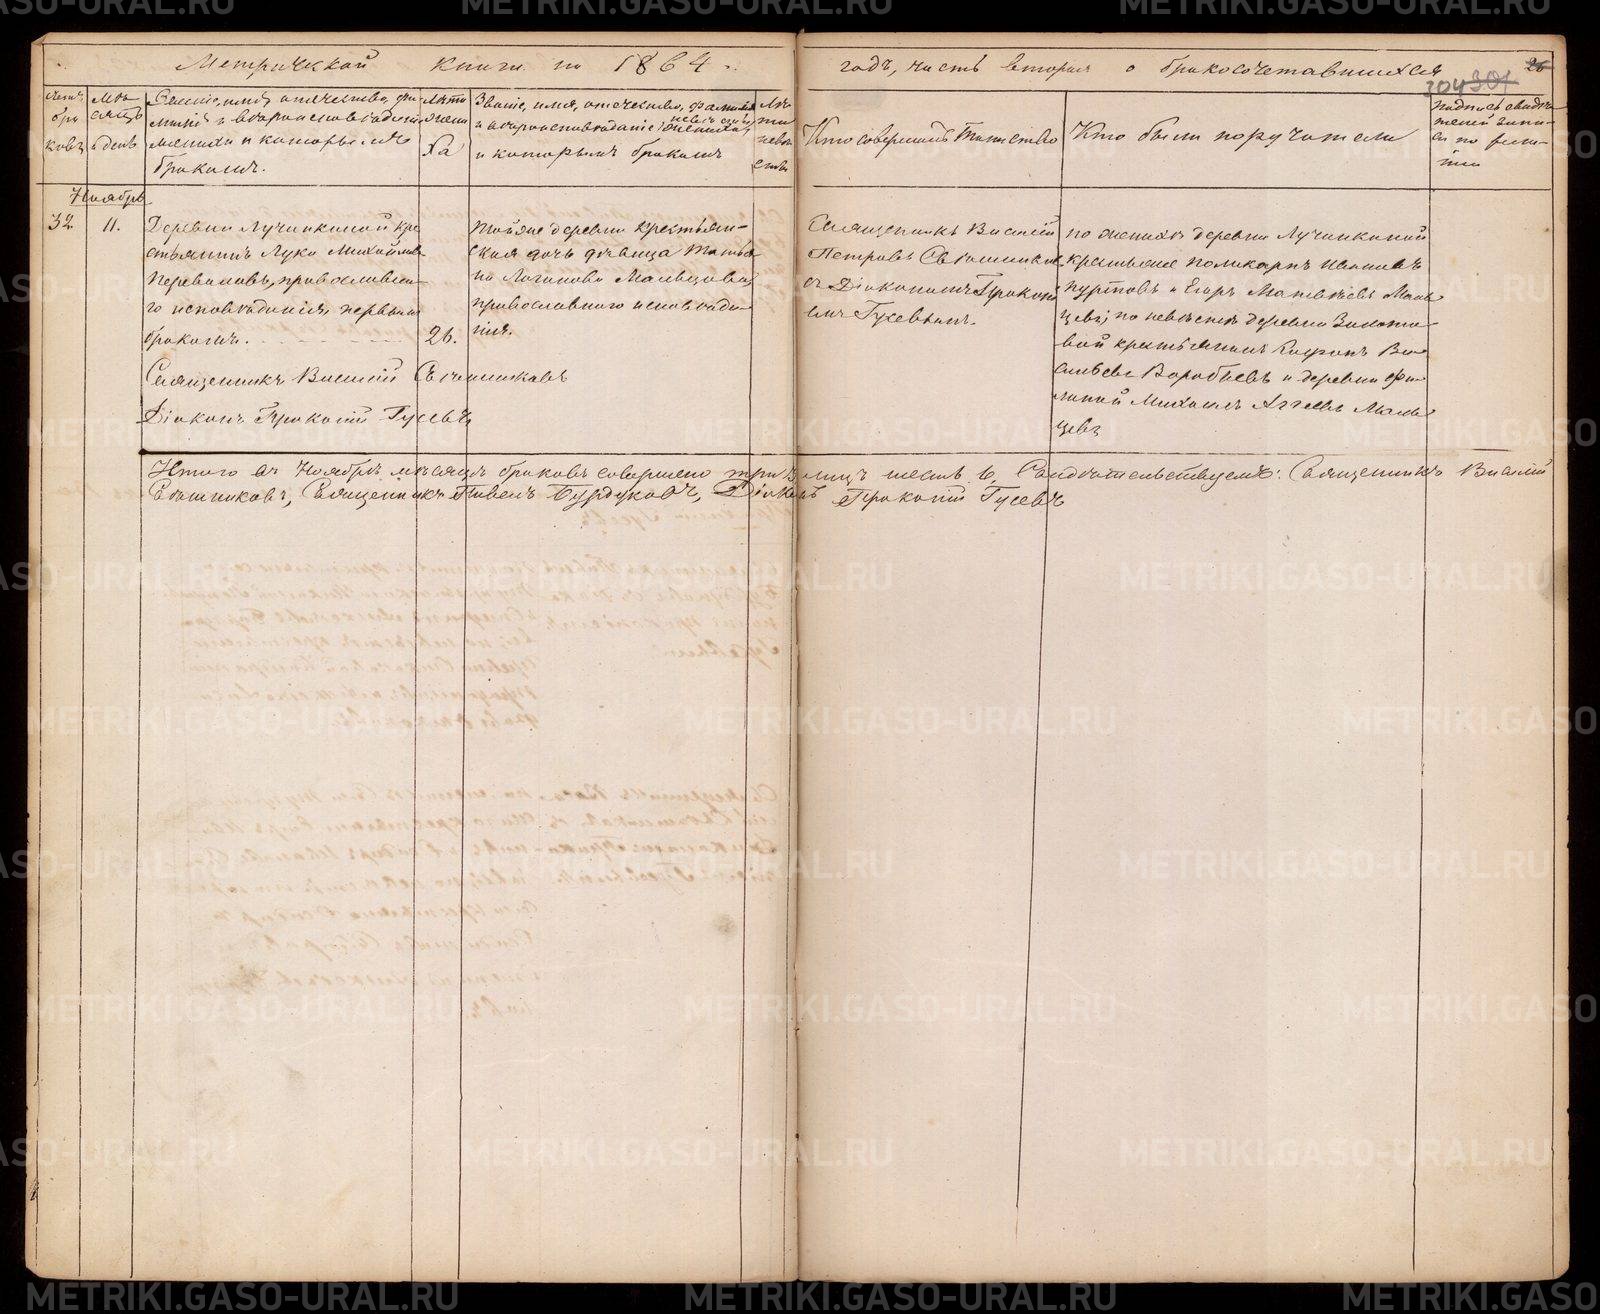 Метрической книги на 1864.
годъ, часть вторая о бракосочетавшихся
26
304 301
Счетъ браковъ
Мѣсяцъ и день
Званіе, имя, отечество, фамилія и вѣроисповѣданіе жениха и которымъ бракомъ.
Лѣта жениха
Званіе, имя, отечество, фамилія и вѣроисповѣданіе невѣсты, и которымъ бракомъ
Лѣта невѣсты
Кто совершалъ Таинство
Кто были поручатели
Подпись свидѣтелей записи по желанію
Ноябрь
32
11.
Деревни Лучинкиной кре
стьянинъ Лука Михайловъ
Переваловъ, православна
го исповѣданія, первымъ
бракомъ.
26.
Священникъ Василій Свѣчниковъ
Діаконъ Прокопій Гусевъ
Тойже деревни крестьян-
ская дочь дѣвица Татья
на Логинова Мальцова,
православного исповѣда-
нія.
Священникъ Василій
Петровъ Свѣчниковъ
съ Діакономъ Прокопі
емъ Гусевымъ.
по женихѣ деревни Лучинкиной
крестьяне Поликарпъ Ивановъ
Пуртовъ и Егоръ Матвѣевъ Маль
цевъ; по невѣстѣ деревни
крестьянинъ Ва
сильевъ Воробьевъ и деревни
Михаилъ Маль
цевъ
Итого въ Ноябрѣ мѣсяцѣ браковъ совершено три лицъ шесть 6. Свидѣтельствуемъ: Священникъ Василій
Свѣчниковъ, Священникъ Павелъ Бурдуковъ, Діаконъ Прокопій Гусевъ
METRIKI.GASO-URAL.RU